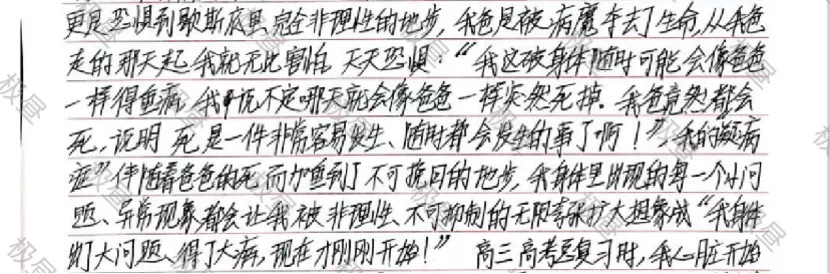 更是恐惧到歇斯底里、完全非理性的地步，我爸是被病魔夺去了生命，从我爸
走的那天起，我就无比害怕，天天恐惧：“我这破身体随时可能会像爸爸
一样得重病，我说不定哪天就会像爸爸一样突然死掉。我爸竟然都会
死，说明 死是一件非常容易发生、随时都会发生的事了啊！”，我的疑病
症”伴随着爸爸的死而加重到了不可挽回的地步，我身体里出现的每一个小问
题、异常现象都会让我被非理性、不可抑制的无限夸张扩大想象成“我身体
出了大问题、得了大病，现在才刚刚开始！” 高三高考总复习时，我心脏开始
极昼